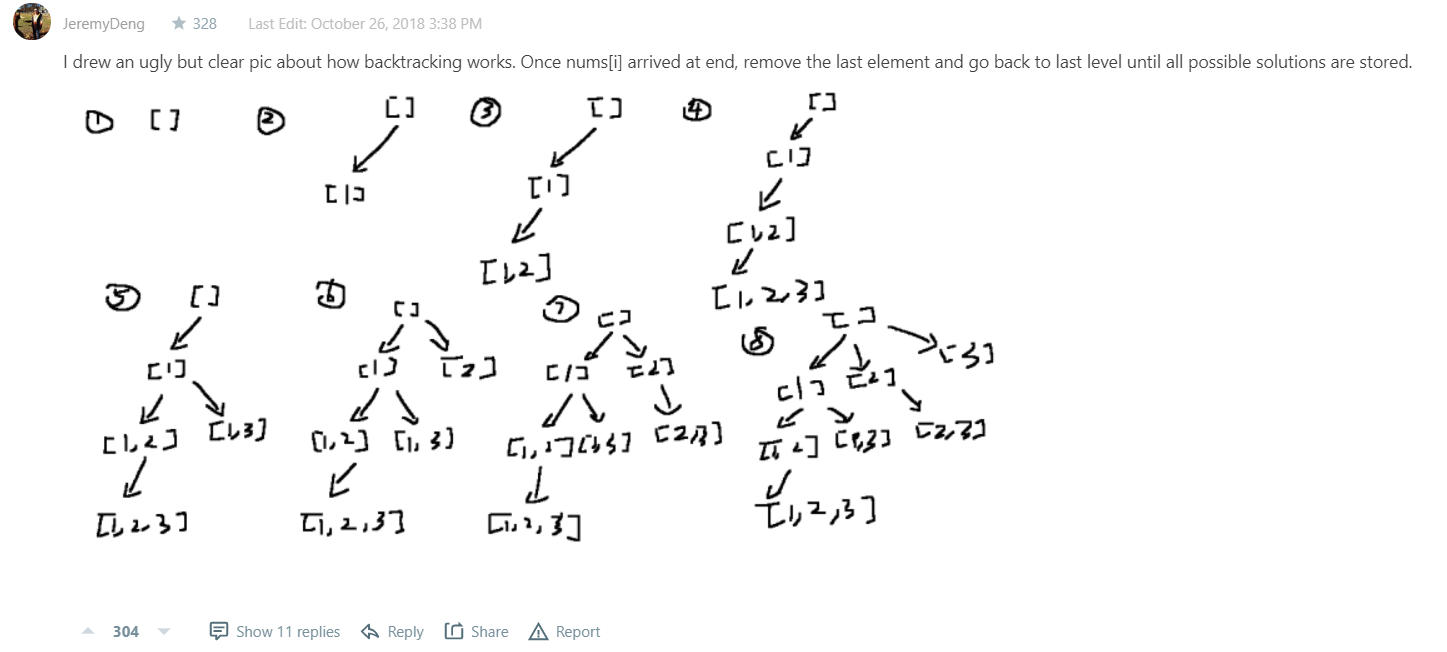 JeremyDeng ★ 328 Last Edit: October 26, 2018 3:38 PM
I drew an ugly but clear pic about how backtracking works. Once nums[i] arrived at end, remove the last element and go back to last level until all possible solutions are stored.
① [] ② [] ③ [] ④ []
[1] [1] [1]
[1,2] [1,2]
[1,2,3]
⑤ [] ⑥ [] ⑦ [] ⑧ []
[1] [1] [2] [1] [2] [1] [2] [3]
[1,2] [1,3] [1,2] [1,3] [1,2] [1,3] [2,3] [1,2] [1,3] [2,3]
[1,2,3] [1,2,3] [1,2,3] [1,2,3]
304 Show 11 replies Reply Share Report